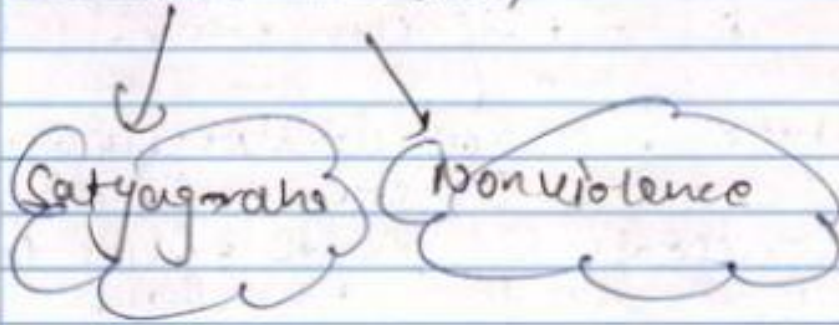 Satyagraha Nonviolence